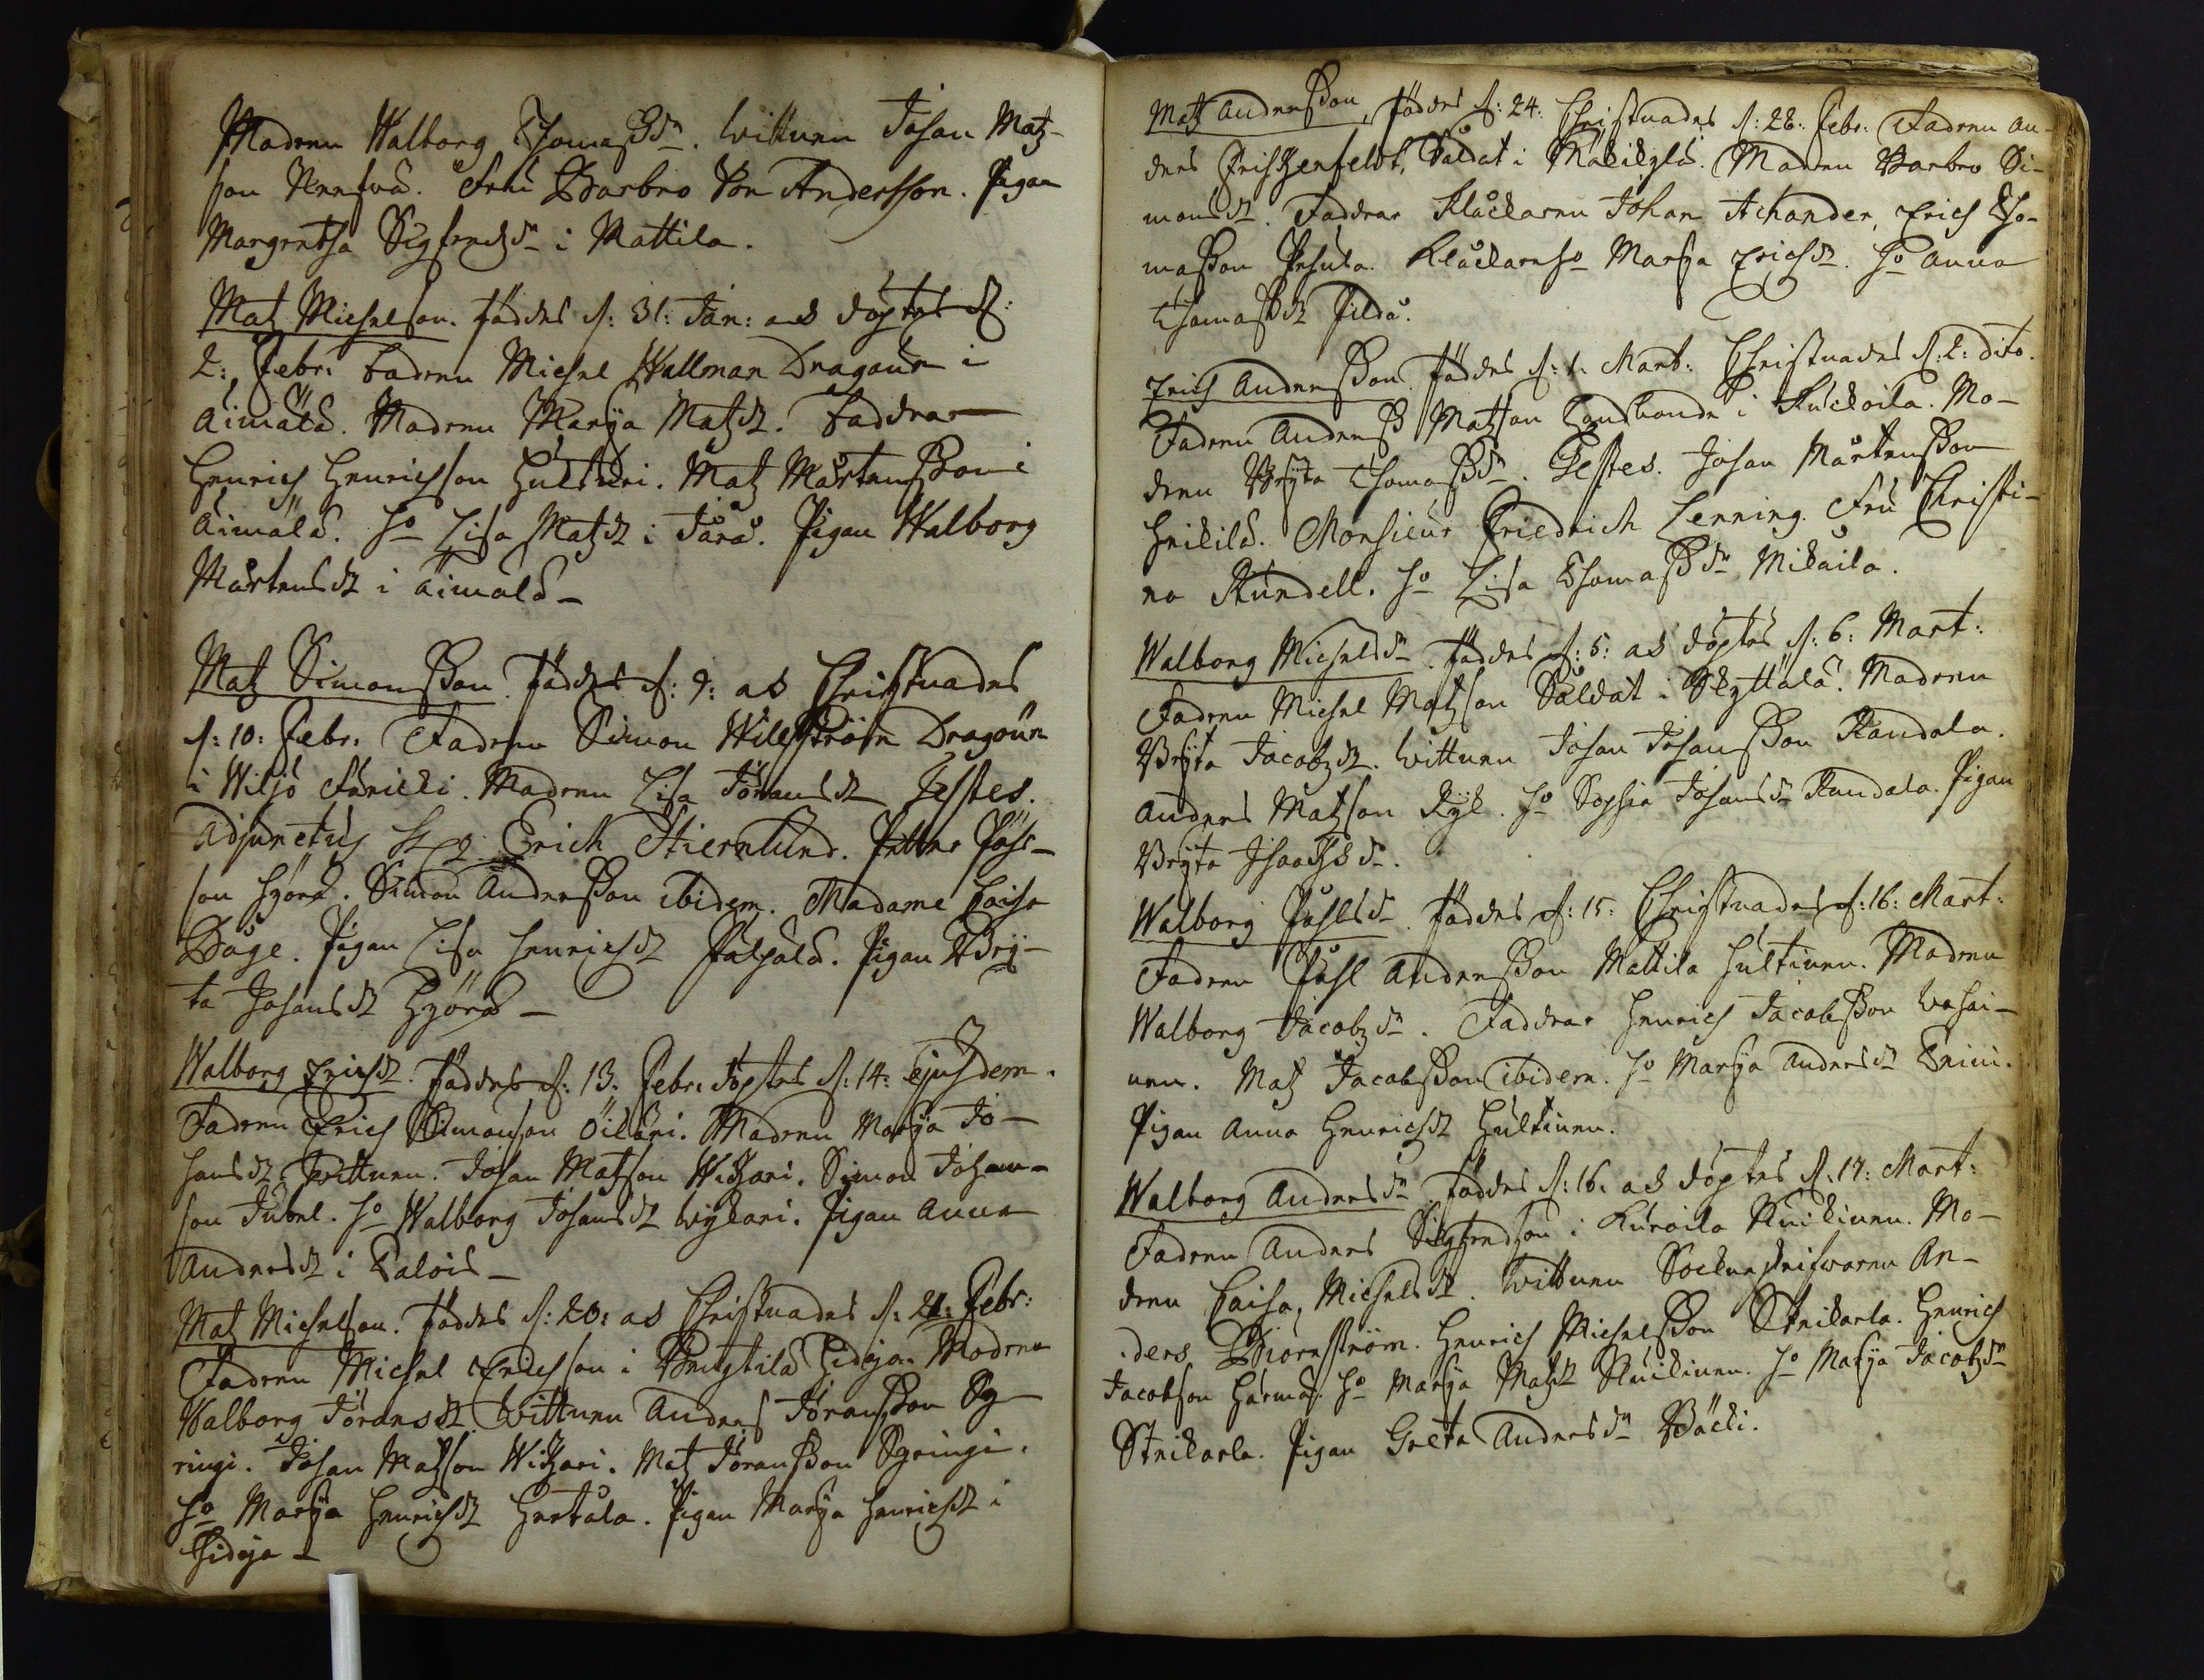 Modren Walborg Thomaßdr. Wittnen Johan Matz-
son Fru Barbro Von Andersson. Pigan
Margretha Sigfredzdr i Mattila.
Matz Michelson. föddes d: 31: Jan: a. d döptes d:
2: Febr: Fadren Michel Wallman Dragoun i
Äimälä. Modren Marija Matzdr. Faddrar
Henrich Henrichson Hultturi. Matz Mårtensson i
Äimälä. Ho Lisa Matzdr i Jårå. Pigan Walborg
Mårtensdr i Äimälä
Matz Simonsson. föddes d: 9: a. d Christnades
d: 10: Febr. Fadren Simon Willström Dragoun
i Modren Lisa Jöransdr Testes.
Adjunctus Erich Stiernlund. Petter
son Hyörä. Simon Andersson ibidem. Madame Caisa
Båge. Pigan Lisa Henrichsdr Pigan Bry-
ta Johansdr Hyörä
Walborg Erichsdr. föddes d: 13. Febr: döptes d: 14: ejusdem.
Fadren Erich Simonson Öiläri. Modren Marija Jo-
hansdr. Wittnen. Johan Matson Wikari. Simon Johan-
son Jubel. Ho Walborg Johansdr Wykari. Pigan Anna
Andersdr i Palois
Matz Michelson. föddes d: 20: a. d Christnades d: 21: Febr:
Fadren Michel Erichson i Bengtilä Hidoja. Modren
Walborg Jöransdr Wittnen Anders Jöransson Sy-
ringi. Johan Matzson Wikari. Matz Jöransson Syringi.
Ho Marija Henrichsdr Hertåla. Pigan Marija Henrichsdr i
Hidoja
Matz Andersson, föddes d: 24: Christnades d: 28: Febr: Fadren An-
ders Frischenfeldt, Såldat i Modren Barbro Si-
monsdr. Faddrar Klåckaren Johan Achander, Erich Tho-
masson Klåckarens Ho Marija Erichsdr. Ho Anna
Thomasdr Pildå.
Erich Andersson. föddes d: 1: Mart: Christnades d: 2: dito.
Fadren Anders Matson Landbonde i Kuckoila. Mo-
dren Bryta Thomaßdr. Testes. Johan Mårtensson
Heikilä. Monsieur Friedrich Lenning. Fru Christi-
na Rundell. Ho Lisa Thomaßdr Mikaila.
Walborg Michelsdr. föddes d: 5: a. d döptes d: 6: Mart:
Fadren Michel Matzson Såldat i Skyttälä. Modren
Bryta Jacobzdr. Wittnen Johan Johansson Kandola.
Anders Matzson Ryk. Ho Sophia Johansdr Kandola. Pigan
Bryta Isaachsdr.
Walborg Påhlsdr. föddes d: 15. Christnades d: 16: Mart:
Fadren Påhl Andersson Mattila Hultinen. Modren
Walborg Jacobzdr. Faddrar Henrich Jacobsson Wahai-
nen. Matz Jacobsson ibidem. Ho Marija Andersdr
Pigan Anna Henrichsdr Hultinen.
Walborg Andersdr föddes d: 16: a. d döptes d: 17: Mart:
Fadren Anders Sigfredson i Kuroila Kuikinen. Mo-
dren Caisa, Michelsdr. Wittnen Sockneskrifwaren An-
ders Biörnström. Henrich Michelsson Strikarla. Henrich
Jacobson Harma. Ho Marija Matzdr Kuikinen. Ho Marija Jacobzdr
Strikarla. Pigan Greta Andersdr Bäcki.